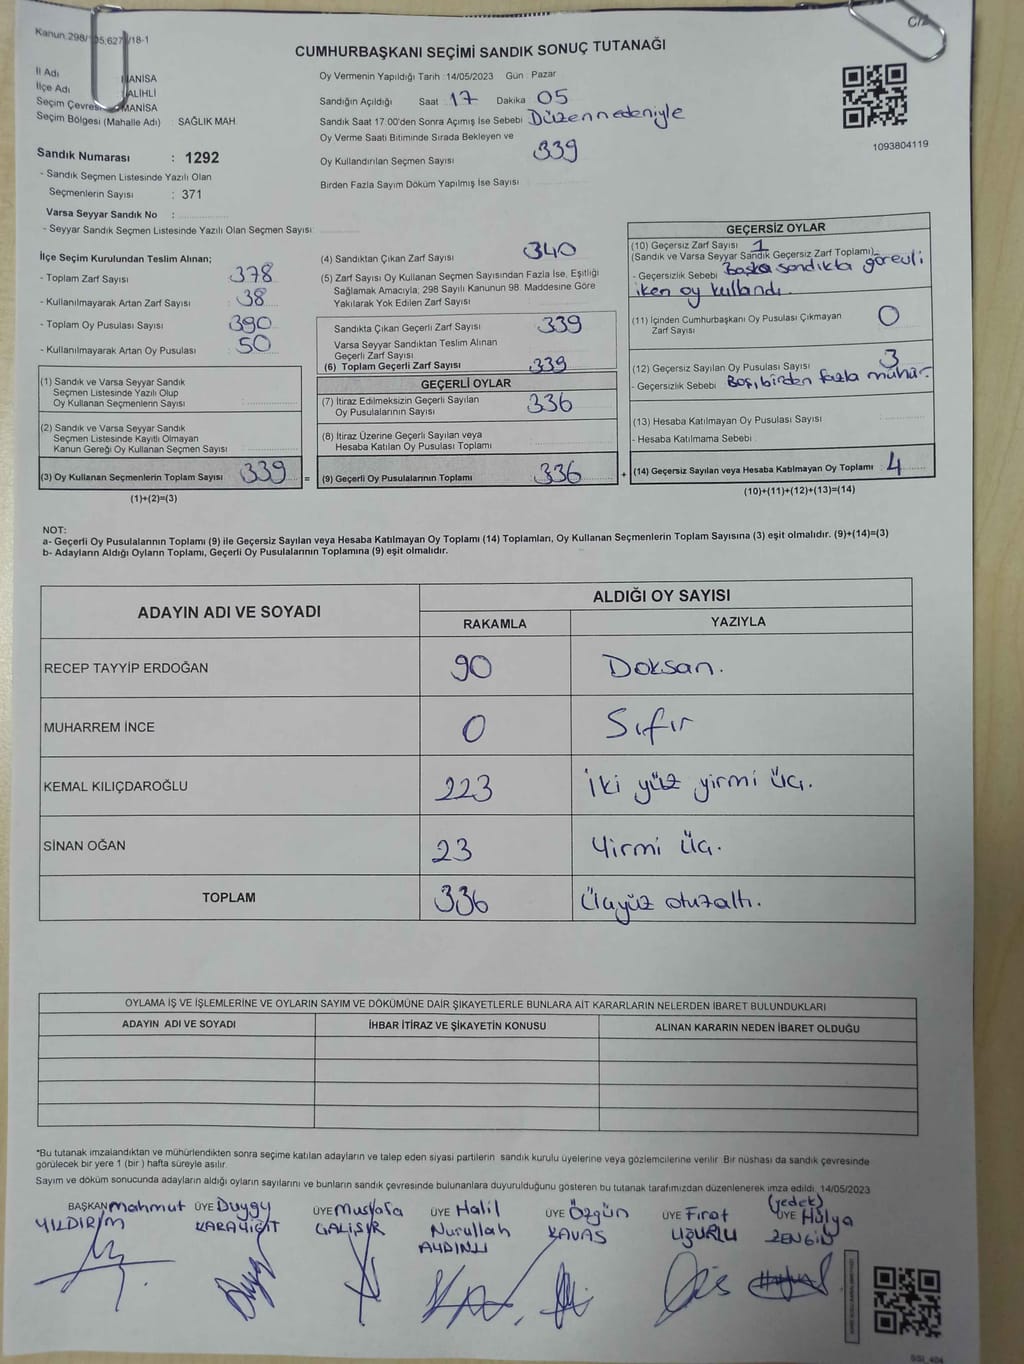 Kanun.298/105;627 /18-1
C/2
CUMHURBAŞKANI SEÇİMİ SANDIK SONUÇ TUTANAĞI
İl Adı MANİSA
İlçe Adı SALİHLİ
Seçim Çevresi MANİSA
Seçim Bölgesi (Mahalle Adı) : SAĞLIK MAH.
Sandık Numarası : 1292
- Sandık Seçmen Listesinde Yazılı Olan
Seçmenlerin Sayısı : 371
Varsa Seyyar Sandık No :
- Seyyar Sandık Seçmen Listesinde Yazılı Olan Seçmen Sayısı:
Oy Vermenin Yapıldığı Tarih : 14/05/2023 Gün : Pazar
Sandığın Açıldığı Saat 17 Dakika 05
Sandık Saat 17:00'den Sonra Açımış İse Sebebi Düzen nedeniyle
Oy Verme Saati Bitiminde Sırada Bekleyen ve
Oy Kullandırılan Seçmen Sayısı 339
Birden Fazla Sayım Döküm Yapılmış İse Sayısı
1093804119
İlçe Seçim Kurulundan Teslim Alınan;
- Toplam Zarf Sayısı 378
- Kullanılmayarak Artan Zarf Sayısı 38
- Toplam Oy Pusulası Sayısı 390
- Kullanılmayarak Artan Oy Pusulası 50
(1) Sandık ve Varsa Seyyar Sandık
Seçmen Listesinde Yazılı Olup
Oy Kullanan Seçmenlerin Sayısı
(2) Sandık ve Varsa Seyyar Sandık
Seçmen Listesinde Kayıtlı Olmayan
Kanun Gereği Oy Kullanan Seçmen Sayısı
(3) Oy Kullanan Seçmenlerin Toplam Sayısı 339 =
(1)+(2)=(3)
(4) Sandıktan Çıkan Zarf Sayısı 340
(5) Zarf Sayısı Oy Kullanan Seçmen Sayısından Fazla İse, Eşitliği
Sağlamak Amacıyla; 298 Sayılı Kanunun 98. Maddesine Göre
Yakılarak Yok Edilen Zarf Sayısı
Sandıkta Çıkan Geçerli Zarf Sayısı 339
Varsa Seyyar Sandıktan Teslim Alınan
Geçerli Zarf Sayısı
(6) Toplam Geçerli Zarf Sayısı 339
GEÇERLİ OYLAR
(7) İtiraz Edilmeksizin Geçerli Sayılan
Oy Pusulalarının Sayısı 336
(8) İtiraz Üzerine Geçerli Sayılan veya
Hesaba Katılan Oy Pusulası Toplamı
(9) Geçerli Oy Pusulalarının Toplamı 336 +
GEÇERSİZ OYLAR
(10) Geçersiz Zarf Sayısı 1
(Sandık ve Varsa Seyyar Sandık Geçersiz Zarf Toplamı)
- Geçersizlik Sebebi Başka sandıkta görevli
iken oy kullandı.
(11) İçinden Cumhurbaşkanı Oy Pusulası Çıkmayan
Zarf Sayısı 0
(12) Geçersiz Sayılan Oy Pusulası Sayısı 3
- Geçersizlik Sebebi Boş, birden fazla mühür.
(13) Hesaba Katılmayan Oy Pusulası Sayısı
- Hesaba Katılmama Sebebi
(14) Geçersiz Sayılan veya Hesaba Katılmayan Oy Toplamı 4
(10)+(11)+(12)+(13)=(14)
NOT:
a- Geçerli Oy Pusulalarının Toplamı (9) ile Geçersiz Sayılan veya Hesaba Katılmayan Oy Toplamı (14) Toplamları, Oy Kullanan Seçmenlerin Toplam Sayısına (3) eşit olmalıdır. (9)+(14)=(3)
b- Adayların Aldığı Oyların Toplamı, Geçerli Oy Pusulalarının Toplamına (9) eşit olmalıdır.
ADAYIN ADI VE SOYADI ALDIĞI OY SAYISI
RAKAMLA YAZIYLA
RECEP TAYYİP ERDOĞAN 90 Doksan.
MUHARREM İNCE 0 Sıfır
KEMAL KILIÇDAROĞLU 223 İki yüz yirmi üç.
SİNAN OĞAN 23 Yirmi üç.
TOPLAM 336 Üçyüz otuzaltı.
OYLAMA İŞ VE İŞLEMLERİNE VE OYLARIN SAYIM VE DÖKÜMÜNE DAİR ŞİKAYETLERLE BUNLARA AİT KARARLARIN NELERDEN İBARET BULUNDUKLARI
ADAYIN ADI VE SOYADI İHBAR İTİRAZ VE ŞİKAYETİN KONUSU ALINAN KARARIN NEDEN İBARET OLDUĞU
*Bu tutanak imzalandıktan ve mühürlendikten sonra seçime katılan adayların ve talep eden siyasi partilerin sandık kurulu üyelerine veya gözlemcilerine verilir. Bir nüshası da sandık çevresinde
görülecek bir yere 1 (bir ) hafta süreyle asılır.
Sayım ve döküm sonucunda adayların aldığı oyların sayılarını ve bunların sandık çevresinde bulunanlara duyurulduğunu gösteren bu tutanak tarafımızdan düzenlenerek imza edildi. 14/05/2023
BAŞKAN Mahmut YILDIRIM
ÜYE Duygu KARAYİĞİT
ÜYE Mustafa ÇALIŞIR
ÜYE Halil Nurullah AYDINLI
ÜYE Özgün KAVAS
ÜYE Fırat UĞURLU
(yedek)
ÜYE Hülya ZENGİN